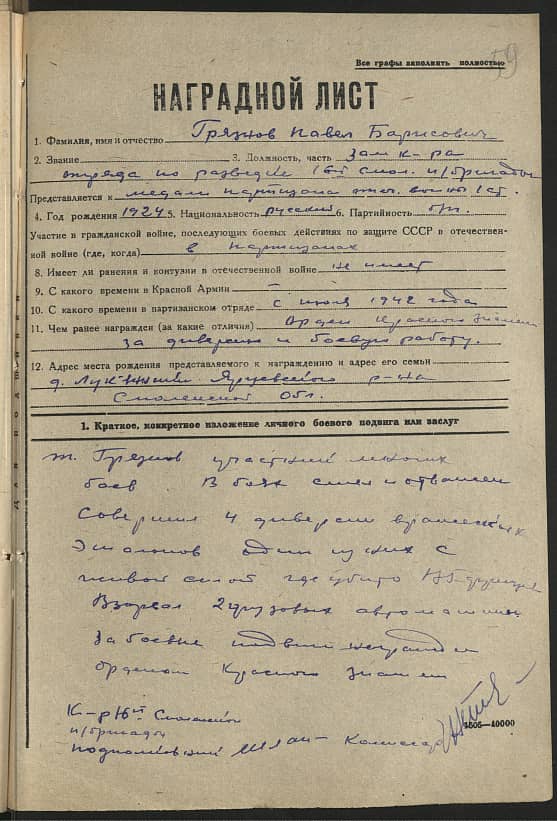 59
Все графы заполнять полностью
НАГРАДНОЙ ЛИСТ
1. Фамилия, имя и отчество Грязнов Павел Барисович
2. Звание 3. Должность, часть зам к-ра
отряда по разведке 1ой смол. п/бригады
Представляется к медали партизана отеч. войны 1 ст.
4. Год рождения 1924 5. Национальность русский 6. Партийность б/п.
Участие в гражданской войне, последующих боевых действиях по защите СССР в отечествен-
ной войне (где, когда) в партизанах
8. Имеет ли ранения и контузии в отечественной войне не имеет
9. С какого времени в Красной Армии
10. С какого времени в партизанском отряде с июля 1942 года
11. Чем ранее награжден (за какие отличия) Орден Красного Знамени
за диверсии и боевую работу.
12. Адрес места рождения представляемого к награждению и адрес его семьи
д. Ярцевского р-на
Смоленской Обл.
1. Краткое, конкретное изложение личного боевого подвига или заслуг
т. Грязнов участник многих
боев. В боях смел и отважен
Совершил 4 диверсии вражеских
Эшалонов один из них с
живой силой где убито
Взорвал 2 грузовых автомашины
За боевые подвиги награжден
орденом Красного Знамени
К-р Смоленской
п/бригады
подполковник Комиссар
5505—40000